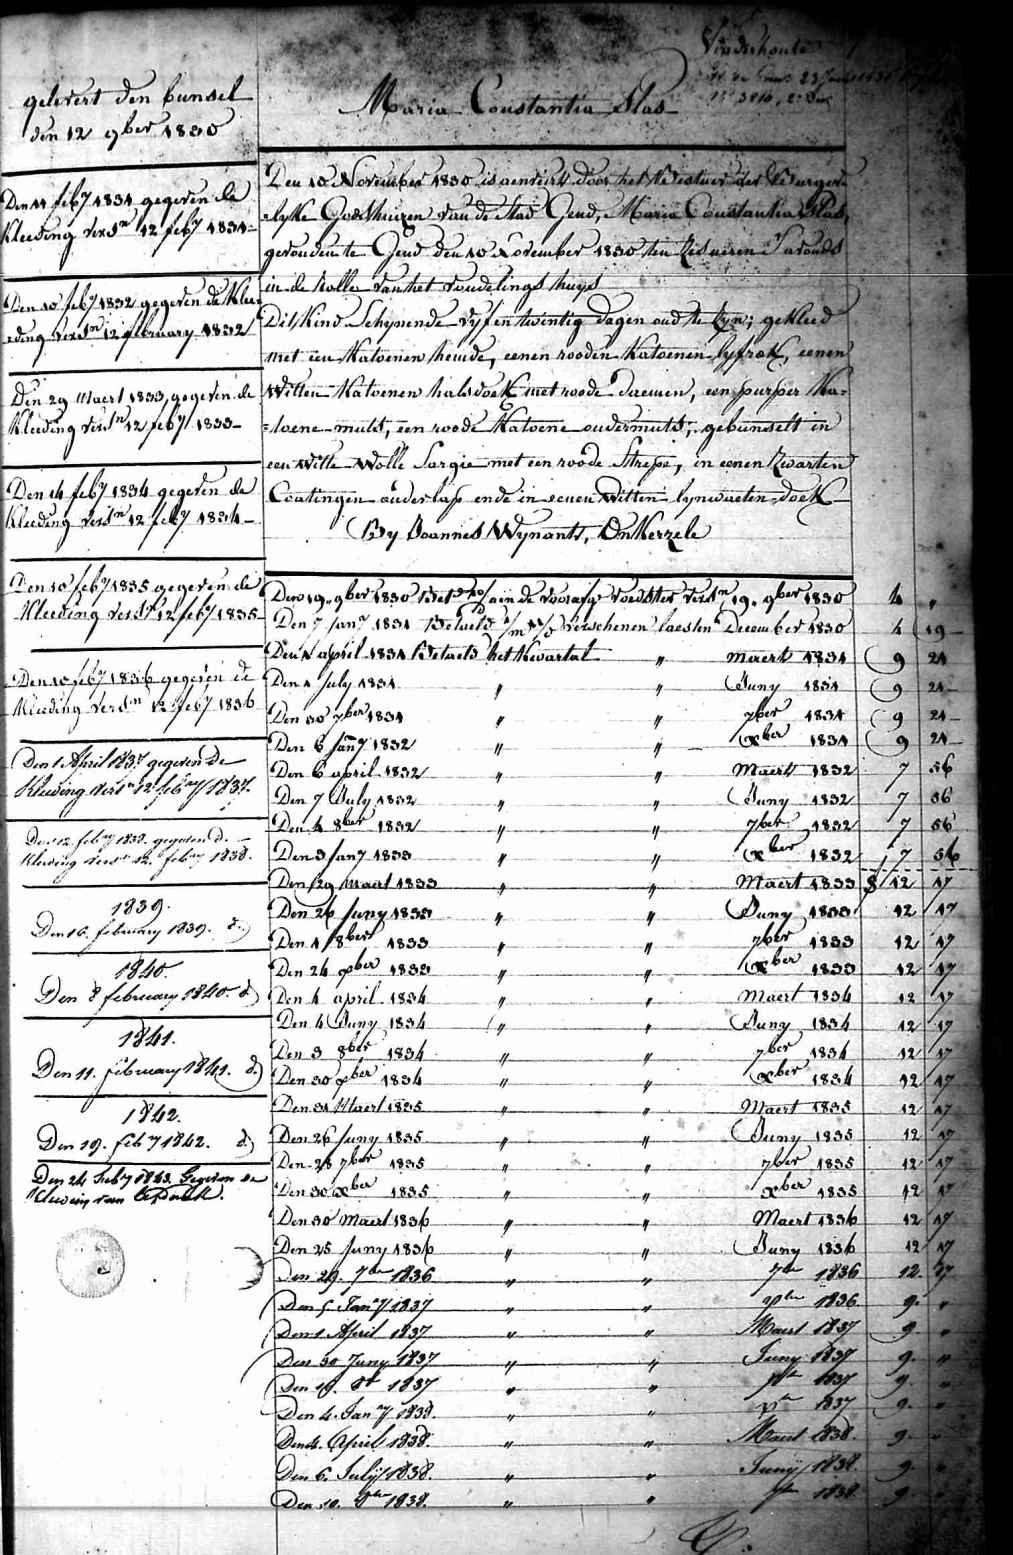 Vinderhoute
gelevert den bunsel
den 12 9ber 1830
Maria Constantia Stas
Den 10 November 1830 is aenveird door het Bestuer der Burger-
-lyke Godshuizen van de Stad Gend, Maria Constantia Stas,
gevonden te Gend den 10 November 1830 ten zes uren 's avonds
in de rolle van het vondelings huys
Dit kind schynende vyf en twintig dagen oud te zyn; gekleed
met een Katoenen hemde, eenen rooden Katoenen lyfrok, eenen
witten Katoenen halsdoek met roode daemen, een purper Ka-
=toene muts, een roode Katoene ondermuts, gebunselt in
een witte wolle Sargie met een roode Strepe, in eenen zwarten
Coatingen onderlap ende in eenen witten lynwaeten doek
By Joannes Wynants, Onkerzele
Den 11 feby 1831 gegeven de
Kleeding versn 12 feby 1831
Den 10 feby 1832 gegeven de Klee-
eding versn 12 february 1832
Den 29 Maert 1833 gegeven de
Kleeding versn 12 feby 1833
Den 14 feby 1834 gegeven de
Kleeding versn 12 feby 1834
Den 10 feby 1835 gegeven de
Kleeding versn 12 feby 1835
Den 10 feby 1836 gegeven de
Kleeding versn 12 feby 1836
Den 1 April 1837 gegeven de
Kleeding versn 12 febry 1837.
Den 12 febry 1838. gegeven d.
Kleeding versn 12. febry 1838.
1839.
Den 16. february 1839. d.)
1840.
Den 8 february 1840. d)
1841.
Den 11. february 1841. d.)
1842.
Den 19. feby 1842. d.)
Den 24 Feby 1843. Gegeven de
Den 19. 9ber 1830 aen de voorafg versn 19. 9ber 1830 4 "
Den 7 jany 1831 Betaeld verschenen laesten December 1830 4 19
Den 1 april 1831 Betaeld het Kwartal " maert 1831 9 21
Den 1 July 1831 " " Juny 1831 9 21
Den 30 7ber 1831 " " 7ber 1831 9 21
Den 6 jany 1832 " " xber 1831 9 21
Den 6 april 1832 " " Maert 1832 7 56
Den 7 July 1832 " " Juny 1832 7 56
Den 4 8ber 1832 " " 7ber 1832 7 56
Den 3 jany 1833 " " xber 1832 7 56
Den 29 maert 1833 " " Maert 1833 12 17
Den 26 juny 1833 " " Juny 1833 12 17
Den 1 8ber 1833 " " 7ber 1833 12 17
Den 24 xber 1833 " " xber 1833 12 17
Den 4 april 1834 " " Maert 1834 12 17
Den 4 Juny 1834 " " Juny 1834 12 17
Den 3 8ber 1834 " " 7ber 1834 12 17
Den 30 xber 1834 " " xber 1834 12 17
Den 31 Maert 1835 " " Maert 1835 12 17
Den 26 juny 1835 " " Juny 1835 12 17
Den 28 7ber 1835 " " 7ber 1835 12 17
Den 30 xber 1835 " " xber 1835 12 17
Den 30 maert 1836 " " Maert 1836 12 17
Den 25 juny 1836 " " Juny 1836 12 17
Den 29. 7ber 1836 " " 7ber 1836 12 17
Den 5 Jany 1837 " " xber 1836 9. "
Den 1 April 1837 " " Maert 1837 9. "
Den 30 Juny 1837 " " Juny 1837 9. "
Den 19. 8r 1837 " " 7br 1837 9. "
Den 4. Jany 1838. " " 1837 9. "
Den 4. April 1838. " " Maert 1838. 9. "
Den 6. July 1838. " " Juny 1838. 9. "
Den 10. 8ber 1838. " " 7br 1838 9. "